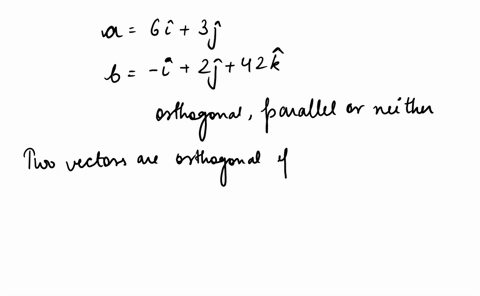 a = 6î + 3ĵ
b = -î + 2ĵ + 42k̂
orthogonal, parallel or neither
Two vectors are orthogonal if